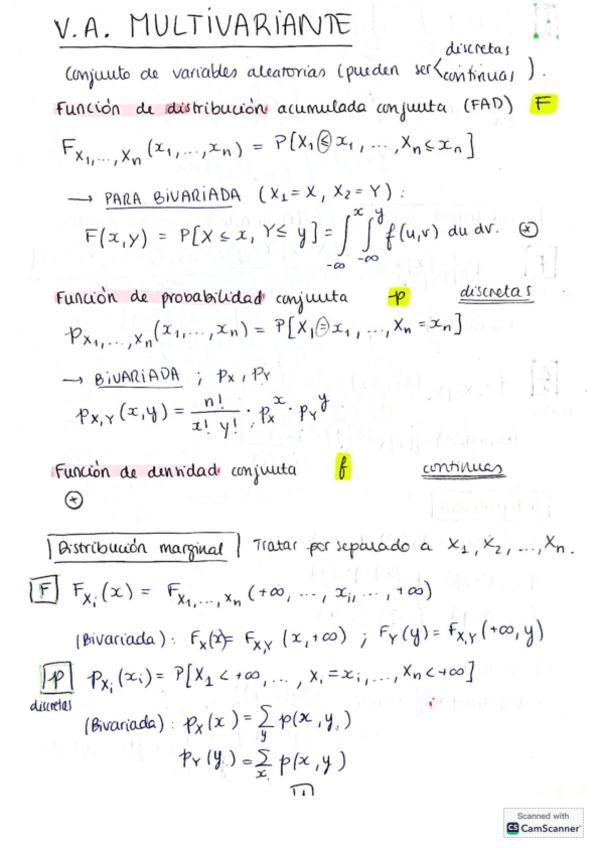 V.A. MULTIVARIANTE
Conjunto de variables aleatorias (pueden ser < discretas continuas ).
Función de distribución acumulada conjunta (FAD) F
F_{X1,...,Xn} (x1,...,xn) = P[X1 ≤ x1 , ... , Xn ≤ xn]
→ PARA BIVARIADA (X1 = X, X2 = Y) :
F(x,y) = P[X ≤ x, Y ≤ y] = ∫_{-∞}^{x} ∫_{-∞}^{y} f(u,v) du dv. (*)
Función de probabilidad conjunta p discretas
p_{X1,...,Xn}(x1,...,xn) = P[X1 = x1 , ..., Xn = xn]
→ BIVARIADA ; pX , pY
p_{X,Y}(x,y) = n!/(x! y!) · pX^x · pY^y
Función de densidad conjunta f continuas
(*)
Distribución marginal Tratar por separado a X1, X2, ..., Xn.
F F_{Xi}(x) = F_{X1,...,Xn} (+∞, ..., xi, ..., +∞)
(Bivariada) : FX(x) = F_{XY} (x,+∞) ; FY(y) = F_{X,Y}(+∞,y)
p p_{Xi}(xi) = P[X1 < +∞, ... , Xi = xi, ..., Xn < +∞]
discretas
(Bivariada) : pX(x) = Σ_y p(x,y)
pY(y) = Σ_x p(x,y)
Scanned with
CS CamScanner